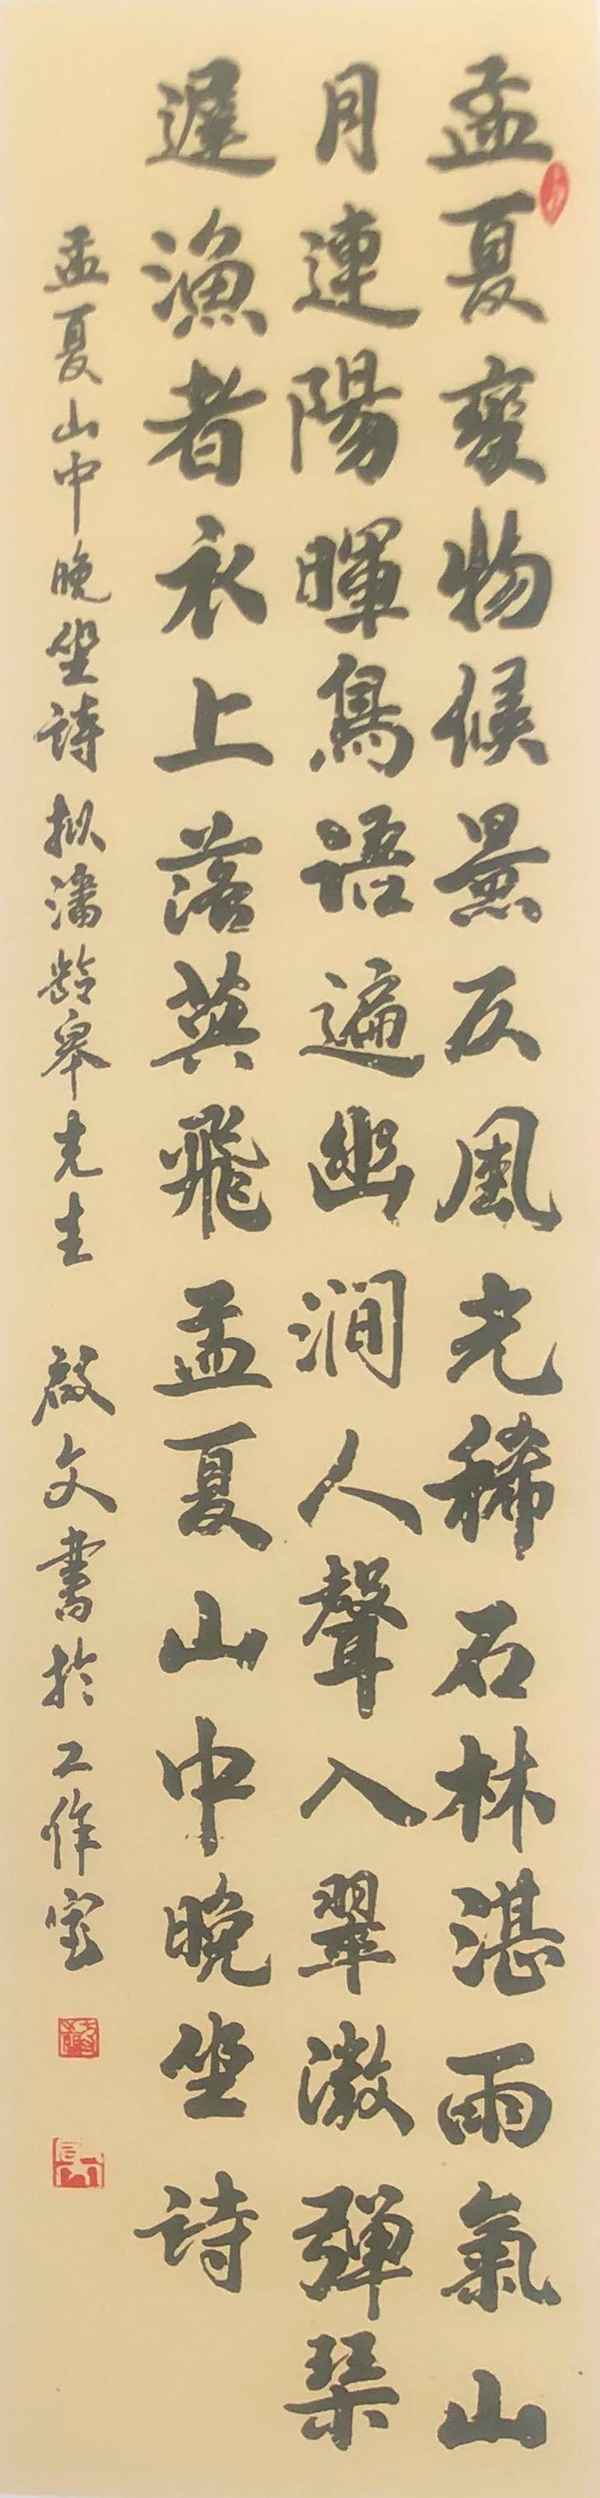 孟夏變物候景仄風光稀石林湛雨氣山
月連陽暉鳥語遍幽澗人聲入翠澂彈琹
遲漁者衣上落英飛孟夏山中晚坐詩
孟夏山中晚坐詩 拟潘齡皋先生 啟文書於工作室